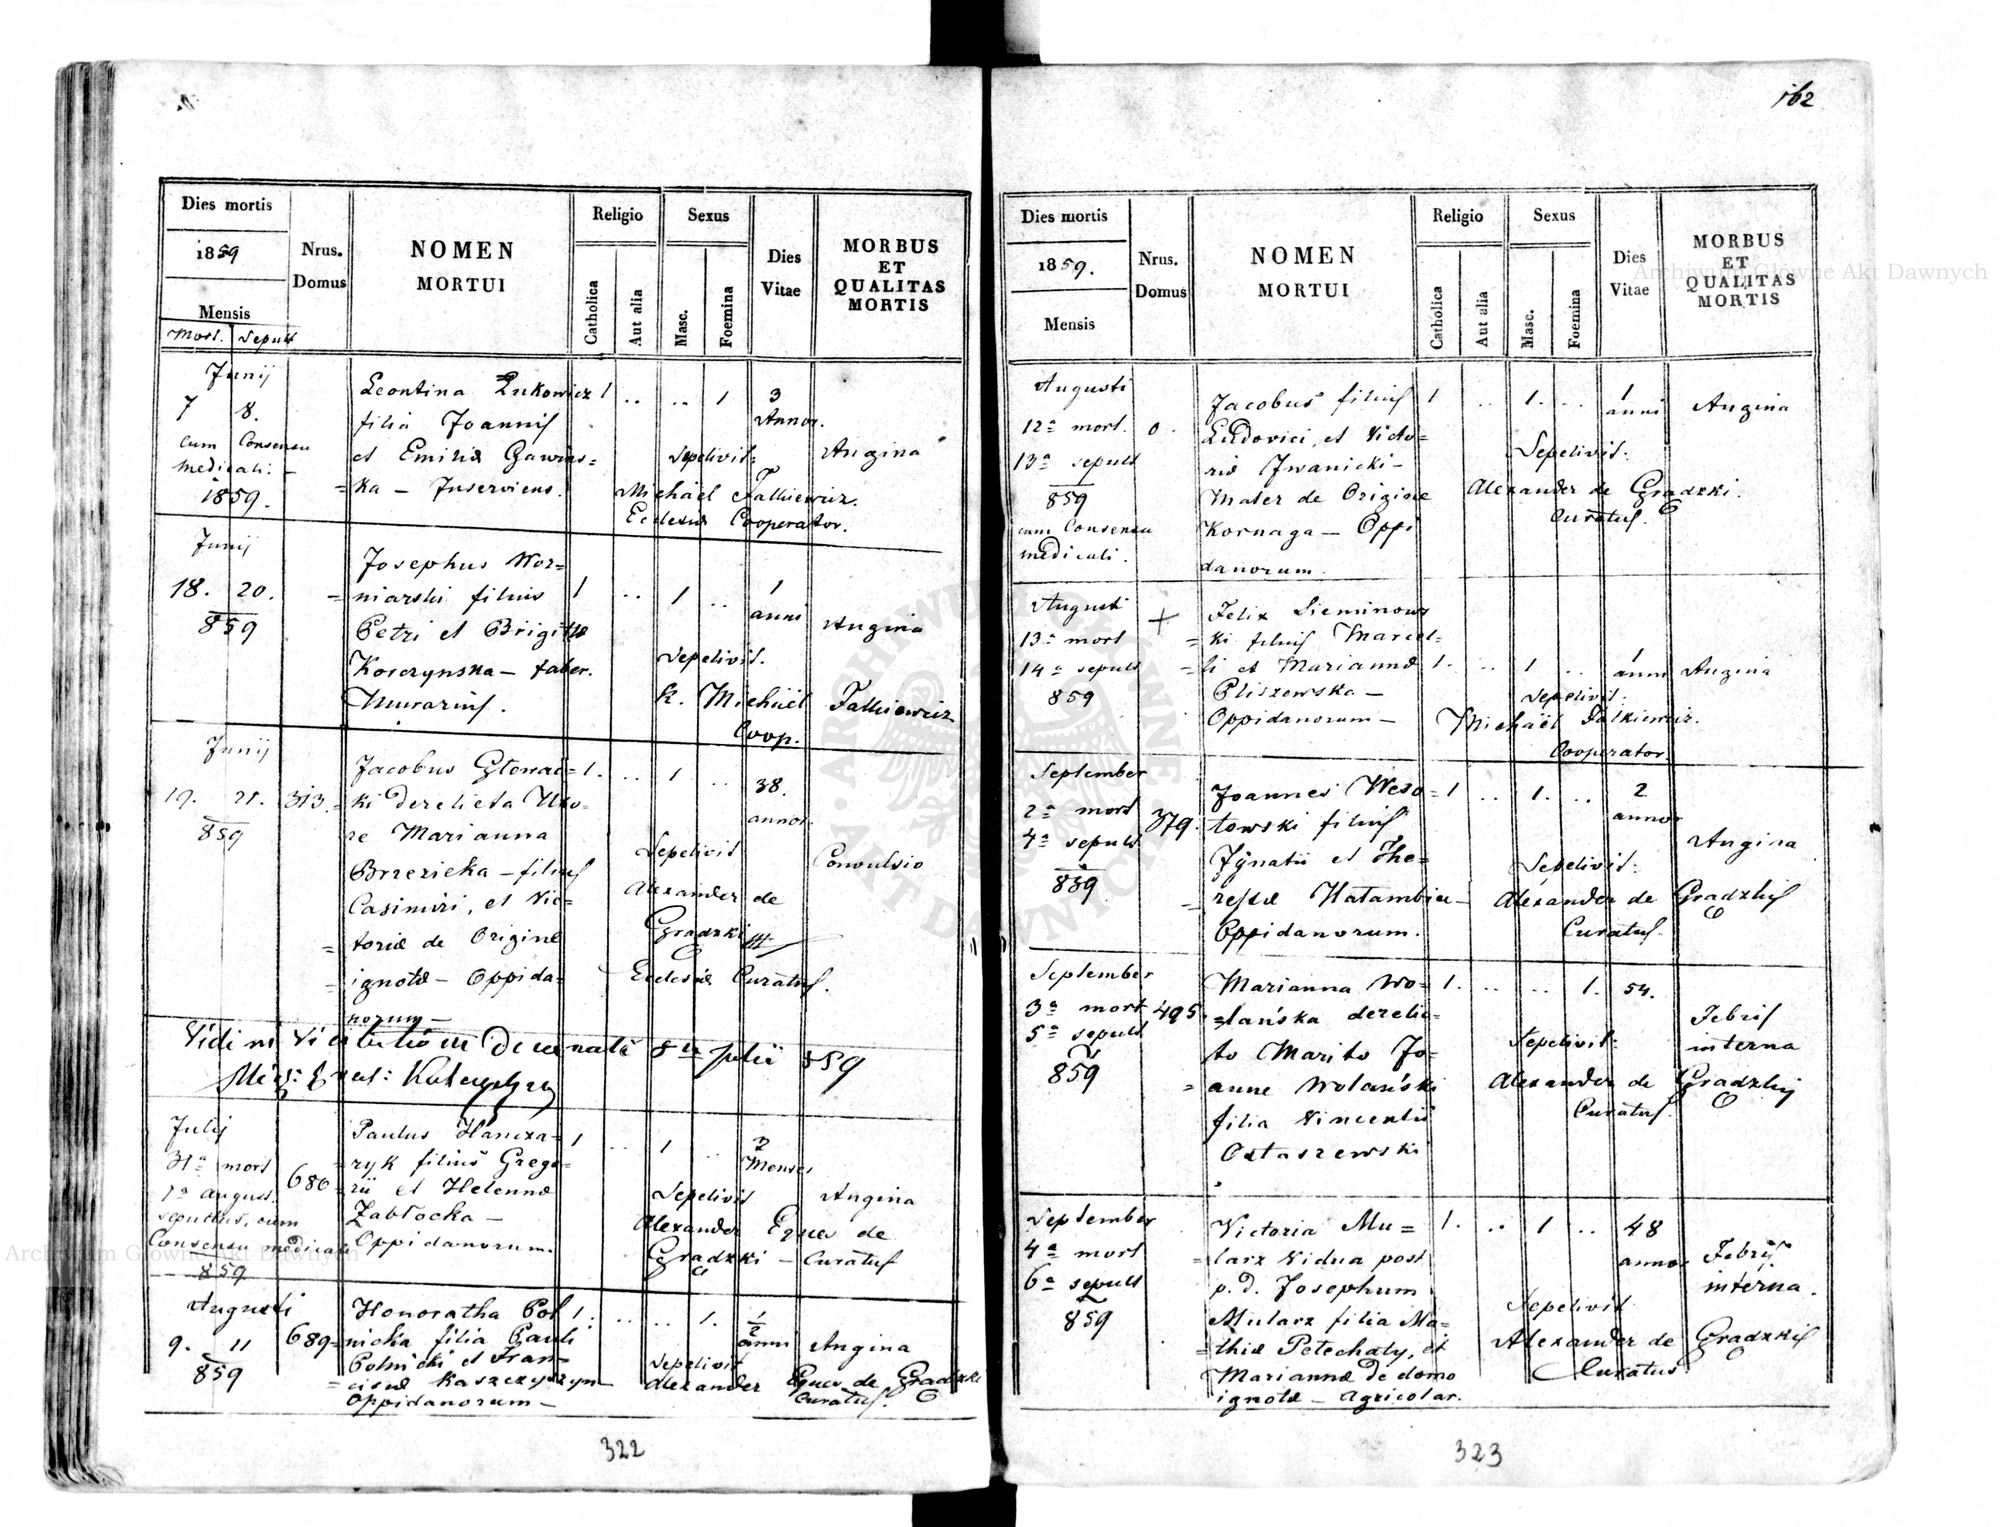 162
Dies mortis
1859
Mensis
Mort. Sepult
Nrus.
Domus
NOMEN
MORTUI
Religio
Catholica
Aut alia
Sexus
Masc.
Foemina
Dies
Vitae
MORBUS
ET
QUALITAS
MORTIS
Junij
7 8.
cum Consensu
medicali. –
1859.
Leontina Łukowicz
filia Joannis
et Emiliæ Gawins=
=ka – Inserviens.
1 .. .. 1
3
Annor.
Angina
Sepelivit:
Michäel Falkiewicz.
Ecclesiæ Cooperator.
Junij
18. 20.
859
Josephus Wor=
=niarski filius
Petri et Brigittæ
Koszynska – faber.
Murarius.
1 .. 1 ..
1
anni
Angina
Sepelivit.
K. Michäel Falkiewicz
Coop.
Junij
19. 21.
859
313.
Jacobus
ki derelicta Uxo=
re Marianna
Brzezicka – filius
Casimiri, et Vic=
=toriæ de Origine
=ignotæ – Oppida=
norum –
1. .. 1 ..
38.
annor.
Convulsio
Sepelivit
Alexander de
Gradzki
Ecclesiæ Curatus.
Vidi in Visitatione Decanali 8va Julii 859
Julij
31a mort
1a august.
sepultus, cum
Consensu medicali
859
686
Paulus Hancza=
=ryk filius Grego=
=rii et Helennæ
Zabłocka –
Oppidanorum.
1 .. 1 ..
Menses
Angina
Sepelivit
Alexander Eques de
Gradzki – Curatus
Augusti
9. 11
859
689
Honoratha Pol
=nicka filia Pauli
Polnicki et Fran=
=cisæ Kaszczyszyn
Oppidanorum –
1. .. .. 1.
1/2
anni
Angina
Sepelivit
Alexander Eques de Gradzki
Curatus.
322
Dies mortis
1859.
Mensis
Nrus.
Domus
NOMEN
MORTUI
Religio
Catholica
Aut alia
Sexus
Masc.
Foemina
Dies
Vitae
MORBUS
ET
QUALITAS
MORTIS
Augusti
12a mort.
13a sepult
859
cum Consensu
medicali.
0.
Jacobus filius
Ludovici, et Victo=
riæ Iwanicki –
Mater de Origine
Kornaga – Oppi
danorum.
1 .. 1. ..
1
anni
Angina
Sepelivit:
Alexander de Gradzki.
Curatus.
Augusti
13a mort
14a sepult
859
+
Felix Sieminows
=ki filius Marcel=
=li et Mariannæ
Pliszewska –
Oppidanorum –
1. .. 1 ..
1
anni
Angina
Sepelivit.
Michäel Falkiewicz.
Cooperator.
September
2a mort
4a sepult
859
379.
Joannes Weso=
łowski filius
Ignatii et The=
=ressæ Hatambia
Oppidanorum.
1 .. 1. ..
2
annor
Angina
Sepelivit:
Alexander de Gradzkij
Curatus.
September
3a mort
5a sepult
859
495.
Marianna Wo=
=lańska derelic=
to Marito Jo=
=anne Wolański
filia Vincentii
Ostaszewski
1. .. .. 1.
54.
Febris
interna
Sepelivit:
Alexander de Gradzkij
Curatus.
September
4a mort
6a sepult
859
Victoria Mu=
=larz Vidua post
p. d. Josephum
Mularz filia Ma=
=thiæ Petechaty, et
Mariannæ de domo
ignotæ – agricolar.
1. .. 1 ..
48
annor
Febris
interna.
Sepelivit
Alexander de Gradzkij
Curatus
323
ARCHIWUM GŁÓWNE AKT DAWNYCH
Archiwum Główne Akt Dawnych
Archiwum Główne Akt Dawnych